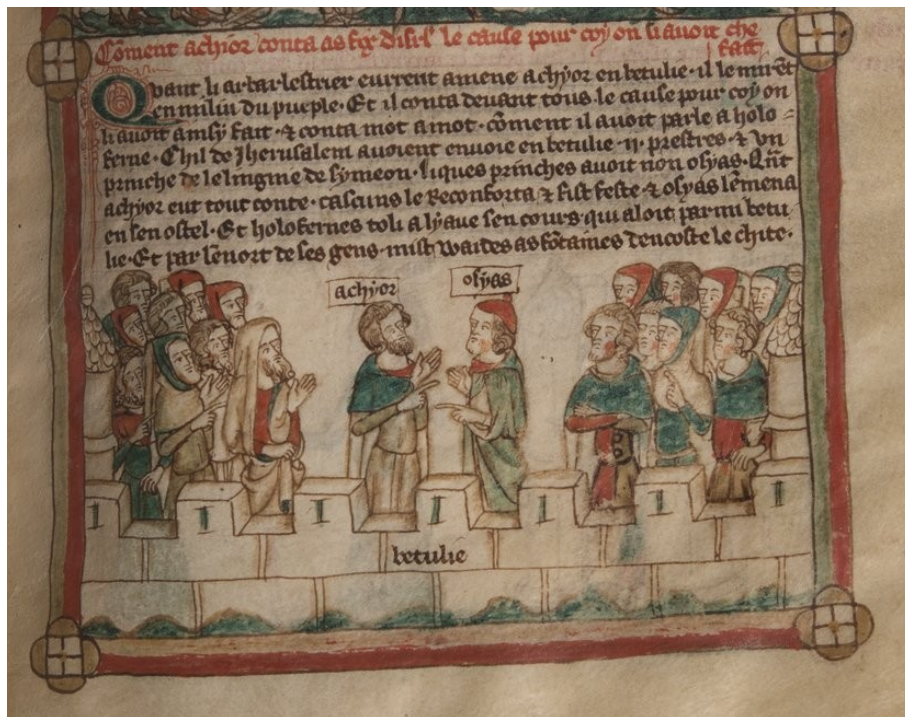 Cõment achior conta as fix disrł le cause pour coy on li avoit che
fait
Quant li arbarlestrier eurent amene achyor en betulie · il le mirẽt
en miliu du pueple · Et il conta devant tous · le cause pour coy on
li avoit ainsy fait · ⁊ conta mot a mot · cõment il avoit parle a holo
ferne · Chil de Jherusalem avoient envoie en betulie · ij · prestres · ⁊ vn
prinche de le lingnie de symeon · liques prinches avoit non osyas · Qñt
achyor eut tout conte · cascuns le Reconforta ⁊ fist feste · ⁊ osyas lẽmena
en sen ostel · Et holofernes toli a lyaue sen cours · qui aloit parmi betu
lie · Et par lẽnort de ses gens · mist waides as fõtaines dencoste le chite ·
achyor
osyas
betulie